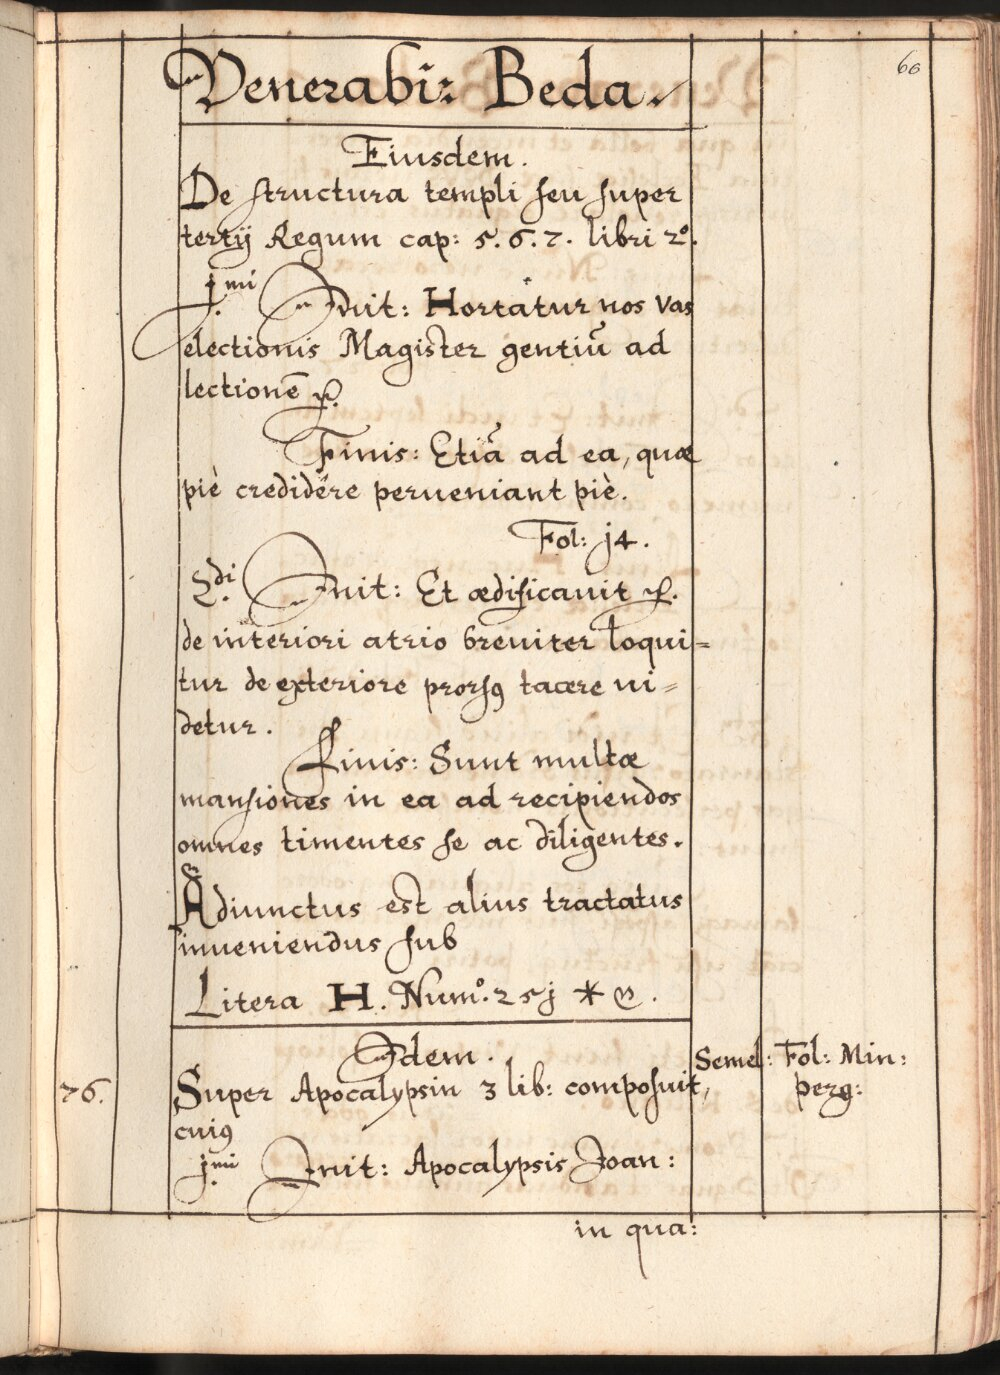 66
Venerabi: Beda.
Eiusdem.
De structura templi seu super
tertij Regum cap: 5. 6. 7. libri 2º.
j.mi Init: Hortatur nos Vas
electionis Magister gentiũ ad
lectionẽ
Finis: Etiã ad ea, quæ
piè credidére perueniant piè.
Fol: j4.
2.di Init: Et ædificauit
de interiori atrio breviter loqui=
tur de exteriore prorsꝰ tacere ui=
detur.
Finis: Sunt multæ
mansiones in ea ad recipiendos
omnes timentes se ac diligentes.
Adiunctus est alius tractatus
inueniendus sub
Litera H. Numº. 25j *
Idem. Semel: Fol: Min:
76. Super Apocalypsin 3 lib: composuit, perg:
cuiꝰ
j.mi Init: Apocalypsis Joan:
in qua: